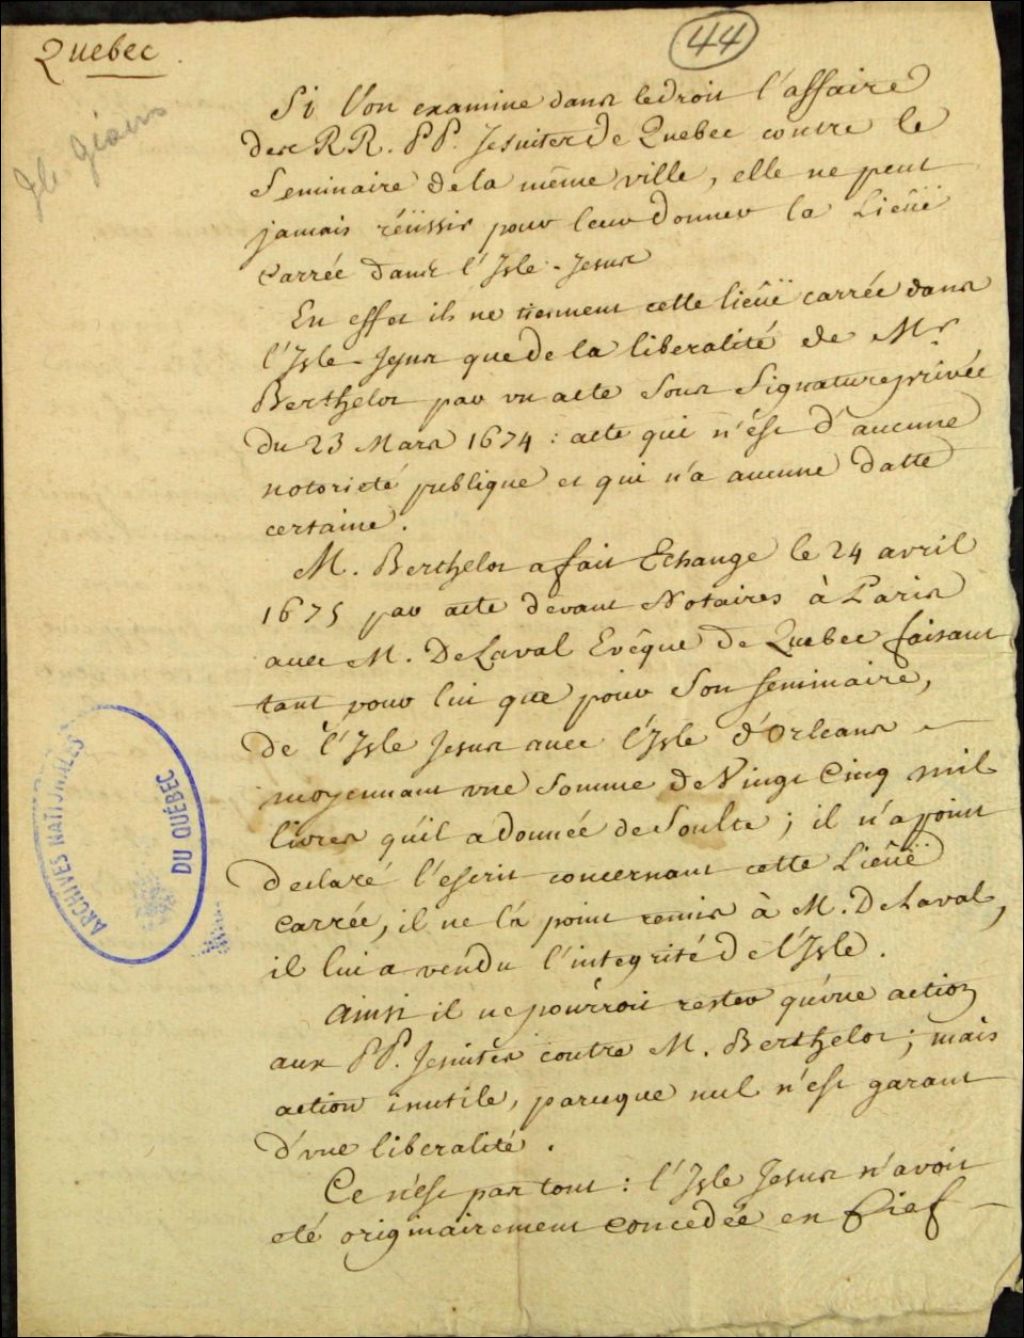 Quebec
44
Si l'on examine dans le droit l'affaire
des RR. PP. Jesuites de Quebec contre le
Seminaire de la même ville, elle ne peut
jamais réüssir pour leur donner la Lieüe
carrée dans l'Isle-Jesus
En effet ils ne tiennent cette lieüe carrée dans
l'Isle-Jesus que de la liberalité de Mr.
Berthelot par un acte sous signature privée
du 23 Mars 1674 : acte qui n'est d'aucune
notorieté publique et qui n'a aucune datte
certaine.
M. Berthelot a fait Echange le 24 avril
1675 par acte devant Notaires à Paris
avec M. De Laval Evêque de Quebec faisant
tant pour lui que pour son seminaire,
de l'Isle Jesus avec l'Isle d'Orleans
moyennant une somme de Vingt Cinq mil
livres qu'il a donnée de soulte ; il n'a point
declaré l'escrit concernant cette Lieüe
carrée, il ne l'a point remis à M. De Laval,
il lui a vendu l'integrité de l'Isle.
Ainsi il ne pourroit rester qu'une action
aux PP. Jesuites contre M. Berthelot ; mais
action inutile, parceque nul n'est garant
d'une liberalité.
Ce n'est pas tout : l'Isle Jesus n'avoit
eté originairement concedée en fief
ARCHIVES NATIONALES
DU QUÉBEC